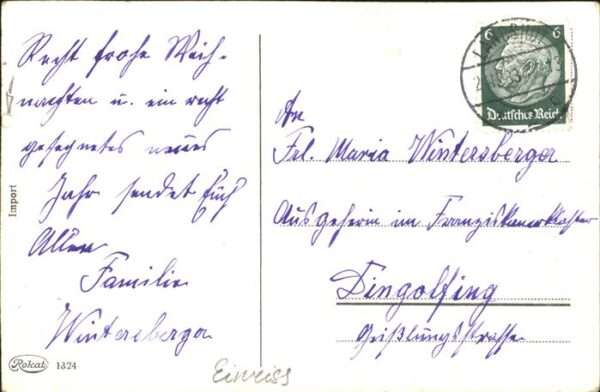 Recht frohe Weih-
nachten u. ein recht
gesegnetes neues
Jahr sendet Euch
Allen
Familie
Wintersberger
Import
Rokat 1324
6 6
Deutsches Reich
An
Frl. Maria Wintersberger
Ausgeherin im Franziskanerkloster
Dingolfing
Geißlungsstrasse